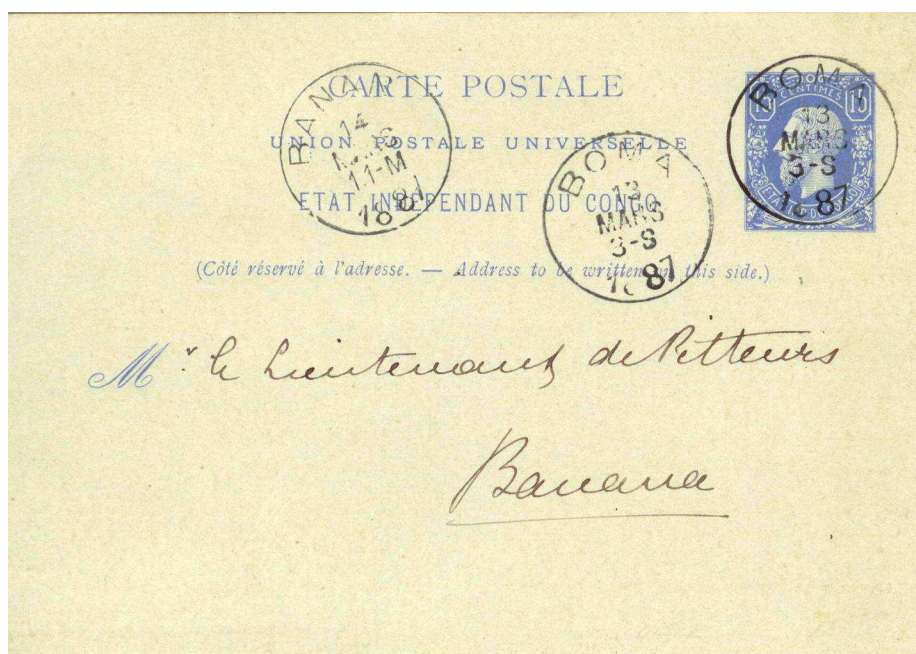 CARTE POSTALE
UNION POSTALE UNIVERSELLE
ETAT INDÉPENDANT DU CONGO
(Côté réservé à l'adresse. — Address to be written on this side.)
BANANA
14
MARS
11-M
1887
BOMA
13
MARS
3-S
1887
BOMA
13
MARS
3-S
1887
CENTIMES
15
ETAT
Mr. le Lieutenant de Pitteurs
Banana